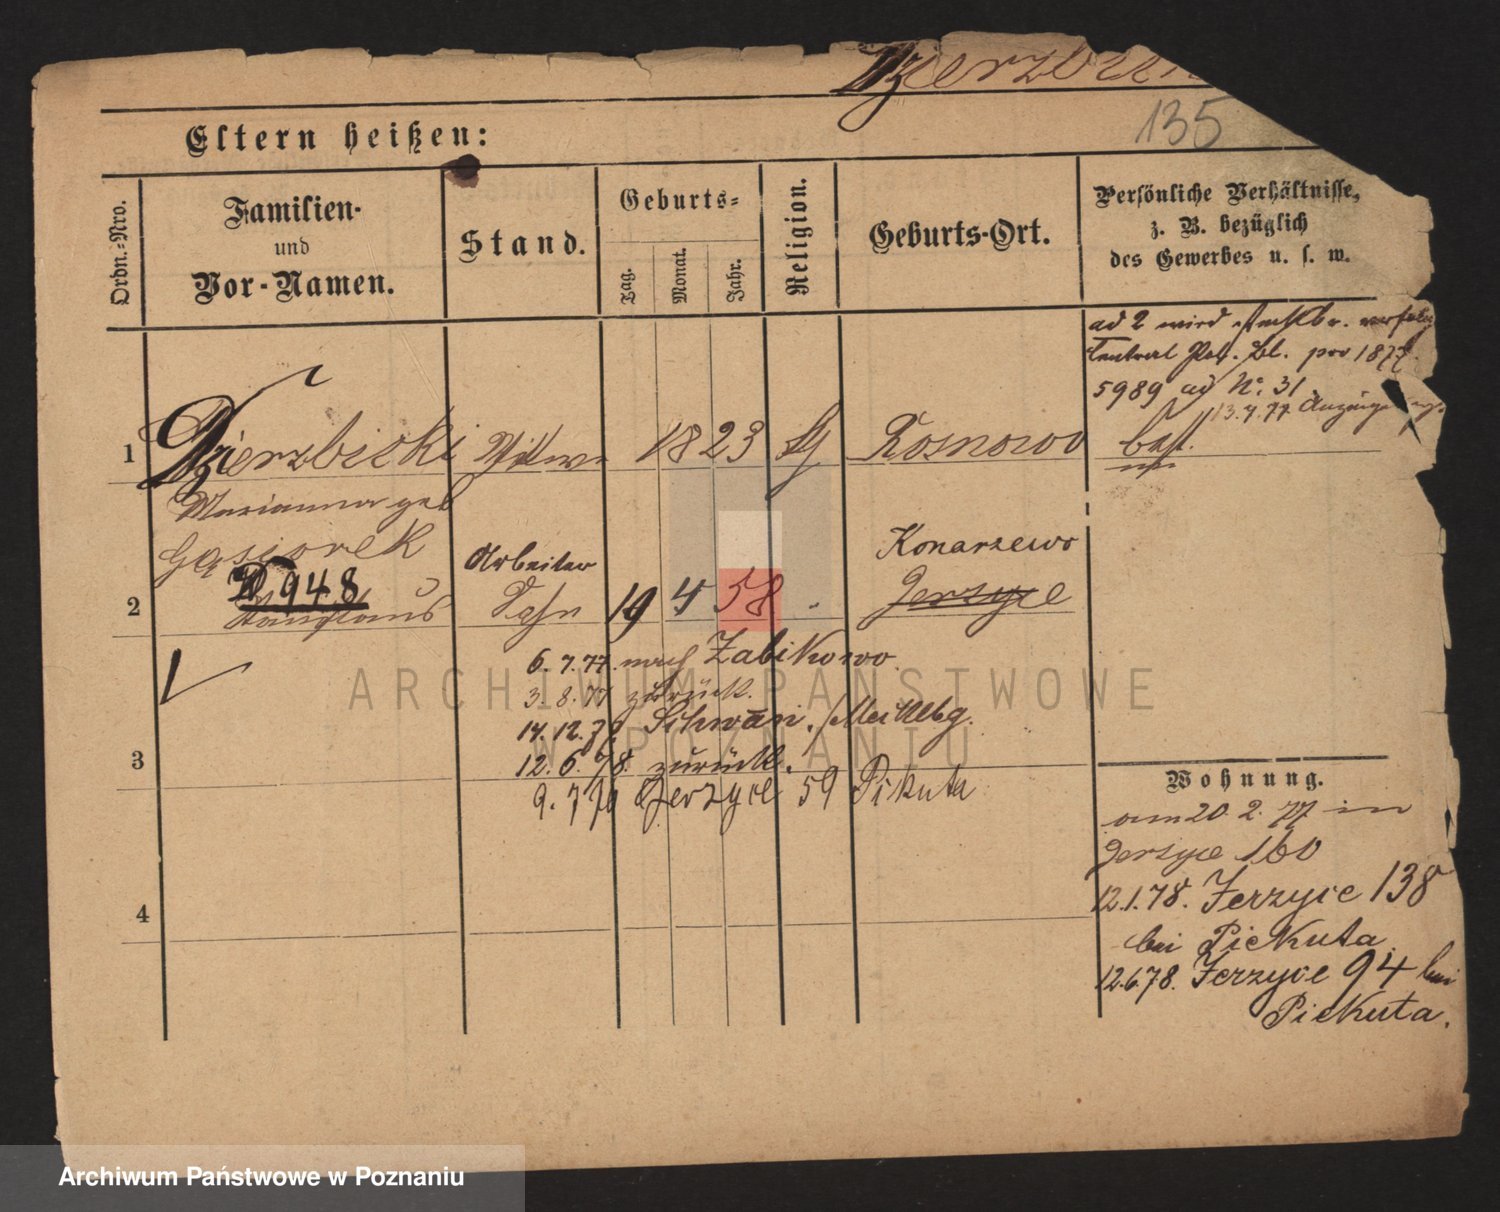 Dzierzbicki
135
Eltern heißen:
Ordn.-Nro.
Familien-
und
Vor-Namen.
Stand.
Geburts-
Tag.
Monat.
Jahr.
Religion.
Geburts-Ort.
Persönliche Verhältnisse,
z. B. bezüglich
des Gewerbes u. s. w.
ad 2 wird steckbr. verfolg
Central Pol. Bl. pro 1877
5989 ad No. 31
13.7.77 Anzeige
1 Dzierzbicki Wittwe 1823 Rosnowo best.
Marianna geb
Gąsiorek
D 948
Arbeiter
Konarzewo
2 Stanislaus Sohn 19 4 58 Jerzyce
6.7.77 nach Zabikowo
3.8.77 zurück.
14.12.77 Schwan. /Mecklbg.
12.6.78. zurück.
3
9.7 Jerzyce 59 Pikuta
Wohnung.
am 20.2.77 in
Jerzyce 160
12.1.78. Jerzyce 138
bei Piekuta.
12.6.78. Jerzyce 94 bei
Piekuta.
4
ARCHIWUM PAŃSTWOWE
W POZNANIU
Archiwum Państwowe w Poznaniu